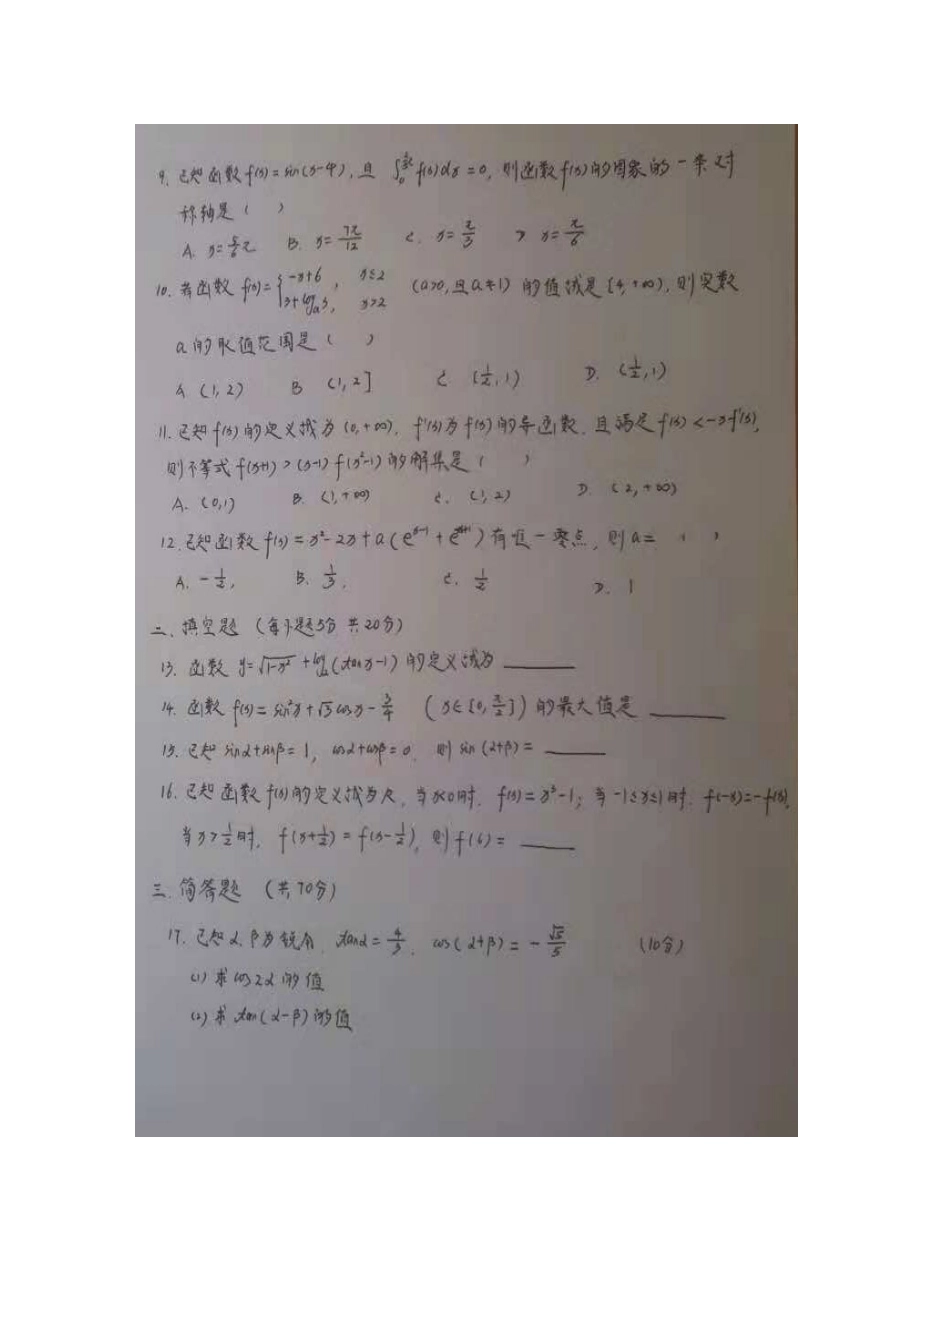 9. 已知函数f(x)=sin(x-φ),且∫₀^{2π/3} f(x)dx=0,则函数f(x)的图象的一条对
称轴是( )
A. x=5/6π B. x=7π/12 C. x=π/3 D x=π/6
10. 若函数f(x)={-x+6, x≤2; 3+logₐx, x>2 (a>0,且a≠1)的值域是[4,+∞),则实数
a的取值范围是( )
A (1,2) B (1,2] C [1/2,1) D. (1/2,1)
11. 已知f(x)的定义域为(0,+∞), f'(x)为f(x)的导函数,且满足f(x)<-xf'(x),
则不等式f(x+1)>(x-1)f(x²-1)的解集是( )
A. (0,1) B. (1,+∞) C. (1,2) D. (2,+∞)
12. 已知函数f(x)=x²-2x+a(e^{x-1}+e^{-x+1})有唯一零点,则a=( )
A. -1/2, B. 1/3. C. 1/2 D. 1
二、填空题(每小题5分 共20分)
13. 函数y=√(1-x²)+log(tanx-1)的定义域为
14. 函数f(x)=sin²x+√3cosx-3/4 (x∈[0,π/2])的最大值是
15. 已知sinα+sinβ=1, cosα+cosβ=0, 则sin(α+β)=
16. 已知函数f(x)的定义域为R,当x<0时,f(x)=x³-1;当-1≤x≤1时,f(-x)=-f(x),
当x>1/2时,f(x+1/2)=f(x-1/2),则f(6)=
三. 简答题 (共70分)
17. 已知α,β为锐角,tanα=4/3, cos(α+β)=-√5/5 (10分)
(1) 求cos2α的值
(2) 求tan(α-β)的值